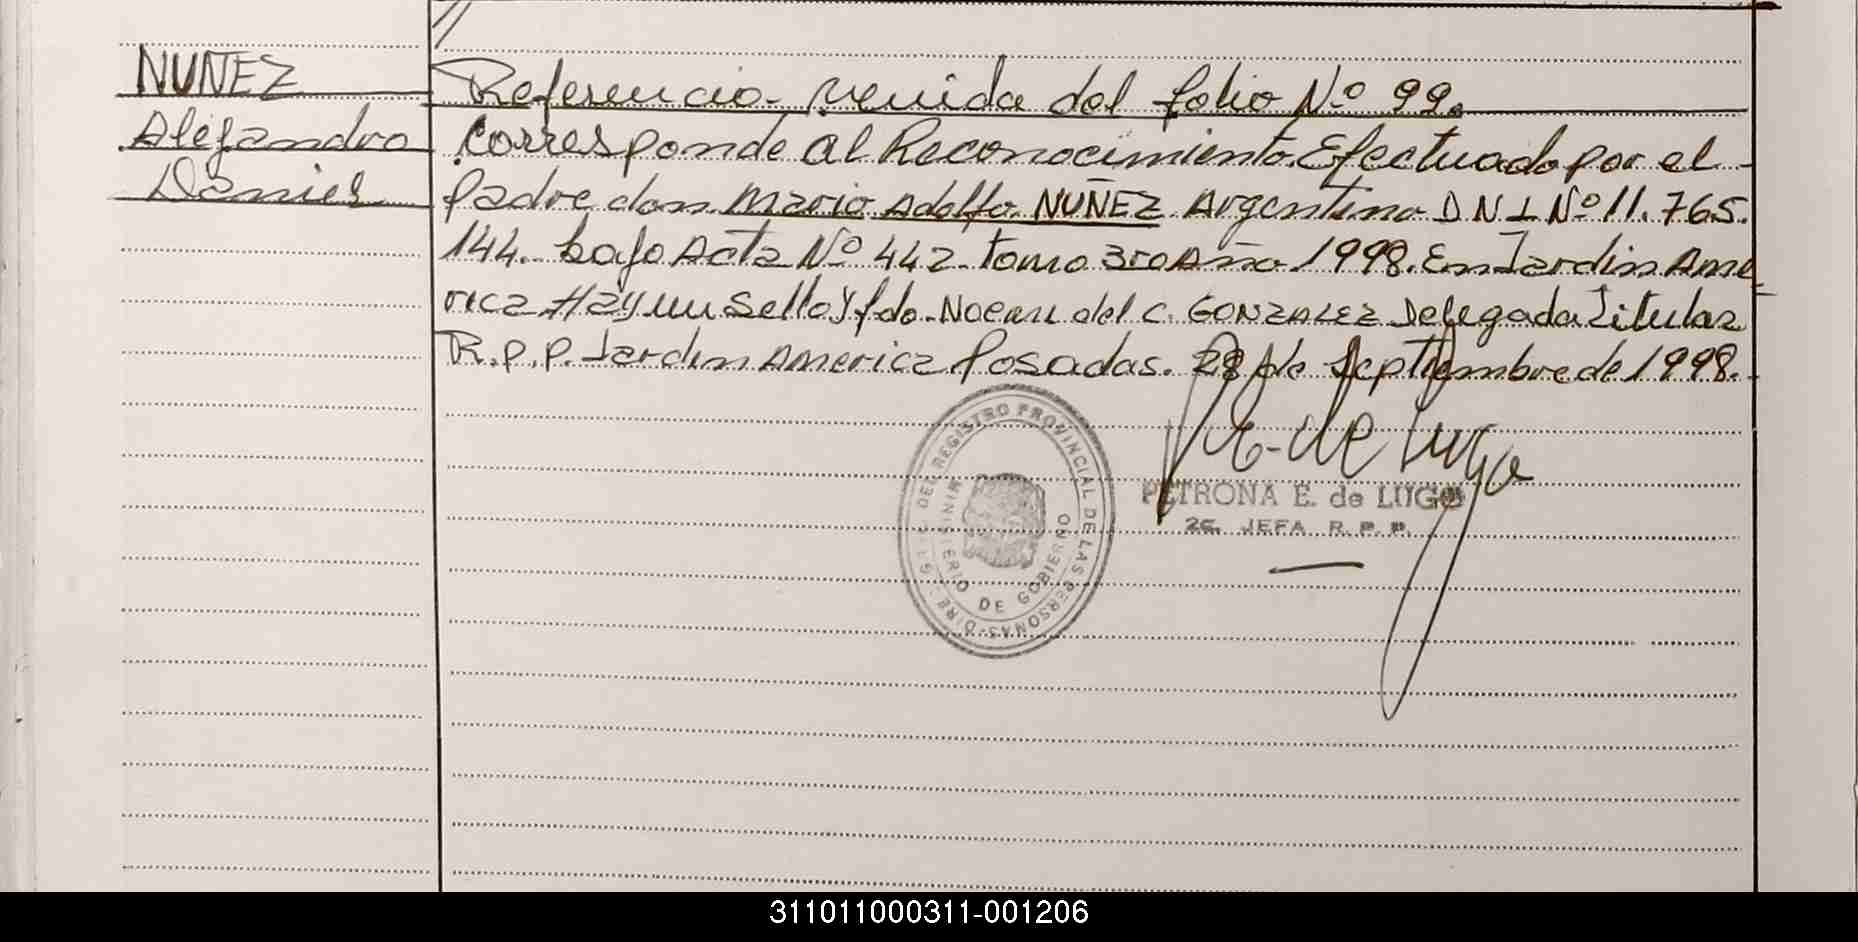 NUÑEZ
Alejandro
Daniel
Referencia venida del folio Nº 99.
Corresponde al Reconocimiento Efectuado por el
padre don Mario Adolfo NUÑEZ Argentino DNI Nº 11.765.
144. bajo Acta Nº 442 tomo 3ro Año 1998. En Jardin Ame
rica Hay un Sello y fdo. del C. GONZALEZ Delegada Titular
R.P.P. Jardin America Posadas. 28 de Septiembre de 1998.
E. de Lugo
PETRONA E. de LUGO
2a. JEFA R.P.P.
DIREC. GRAL. DEL REGISTRO PROVINCIAL DE LAS PERSONAS
MINISTERIO DE GOBIERNO
311011000311-001206